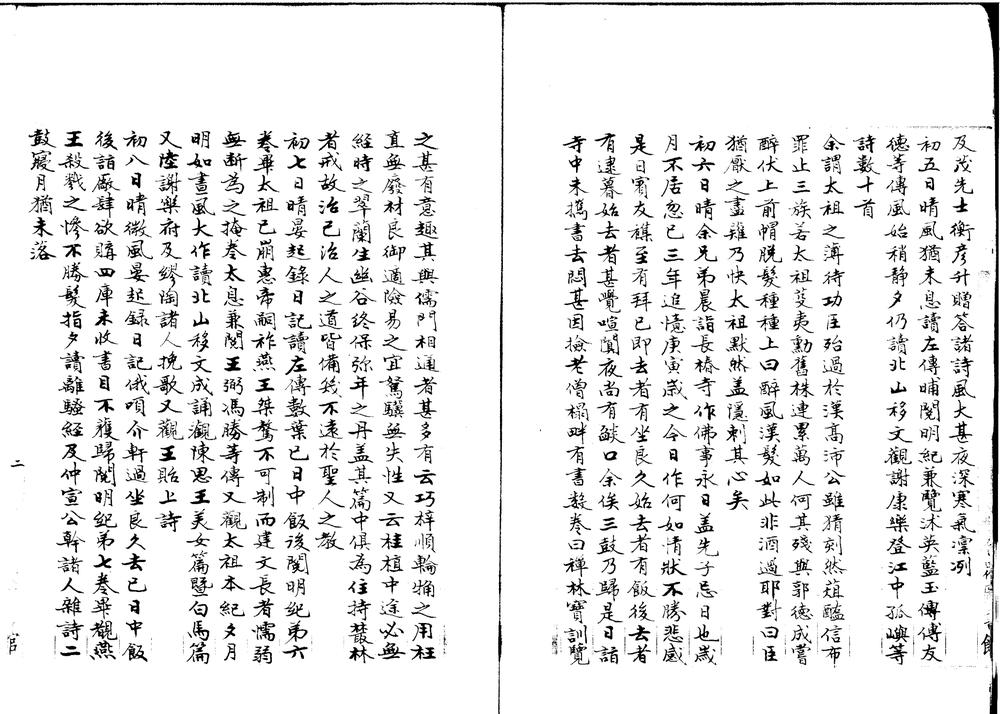 及茂先士衡彦升贈荅諸詩風大甚夜深寒氣凜冽
初五日晴風猶未息讀左傳晡閱明紀兼覽沐英藍玉傳傅友
德等傳風始稍静夕仍讀北山移文觀謝康樂登江中孤嶼等
詩數十首
余謂太祖之薄待功臣殆過於漢高沛公雖猜刻然葅醢信布
罪止三族若太祖芟夷勳舊株連累萬人何其殘與郭德成嘗
醉伏上前帽脫髮種種上曰醉風漢髮如此非酒過耶對曰臣
猶厭之盡薙乃快太祖默然盖隱刺其心矣
初六日晴余兄弟晨詣長椿寺作佛事永日盖先子忌日也歲
月不居忽已三年追憶庚寅歲之今日作何如情狀不勝悲感
是日賓友襍至有拜已即去者有坐良久始去者有飯後去者
有逮暮始去者甚覺喧闐夜尚有燄口余俟三鼓乃歸是日詣
寺中未攜書去悶甚因撿老僧榻畔有書數卷曰禪林寶訓覽
之甚有意趣其與儒門相通者甚多有云巧梓順輪桷之用枉
直無廢材良御適險易之宜駑驥無失性又云桂植中途必無
經時之翠蘭生幽谷終保弥年之丹盖其篇中俱為住持叢林
者戒故治己治人之道皆備幾不遠於聖人之教
初七日晴晏起錄日記讀左傳數葉已日中飯後閱明紀弟六
卷畢太祖已崩惠帝嗣祚燕王桀驁不可制而建文長者懦弱
無斷為之掩卷太息兼閱王弼馮勝等傳又觀太祖本紀夕月
明如晝風大作讀北山移文成誦觀陳思王美女篇暨白馬篇
又陸謝樂府及繆陶諸人挽歌又觀王貽上詩
初八日晴微風晏起録日記俄頃介軒過坐良久去已日中飯
後詣廠肆欲購四庫未收書目不獲歸閱明紀弟七卷畢觀燕
王殺戮之慘不勝髮指夕讀離騷經及仲宣公幹諸人雜詩二
鼓寢月猶未落
二